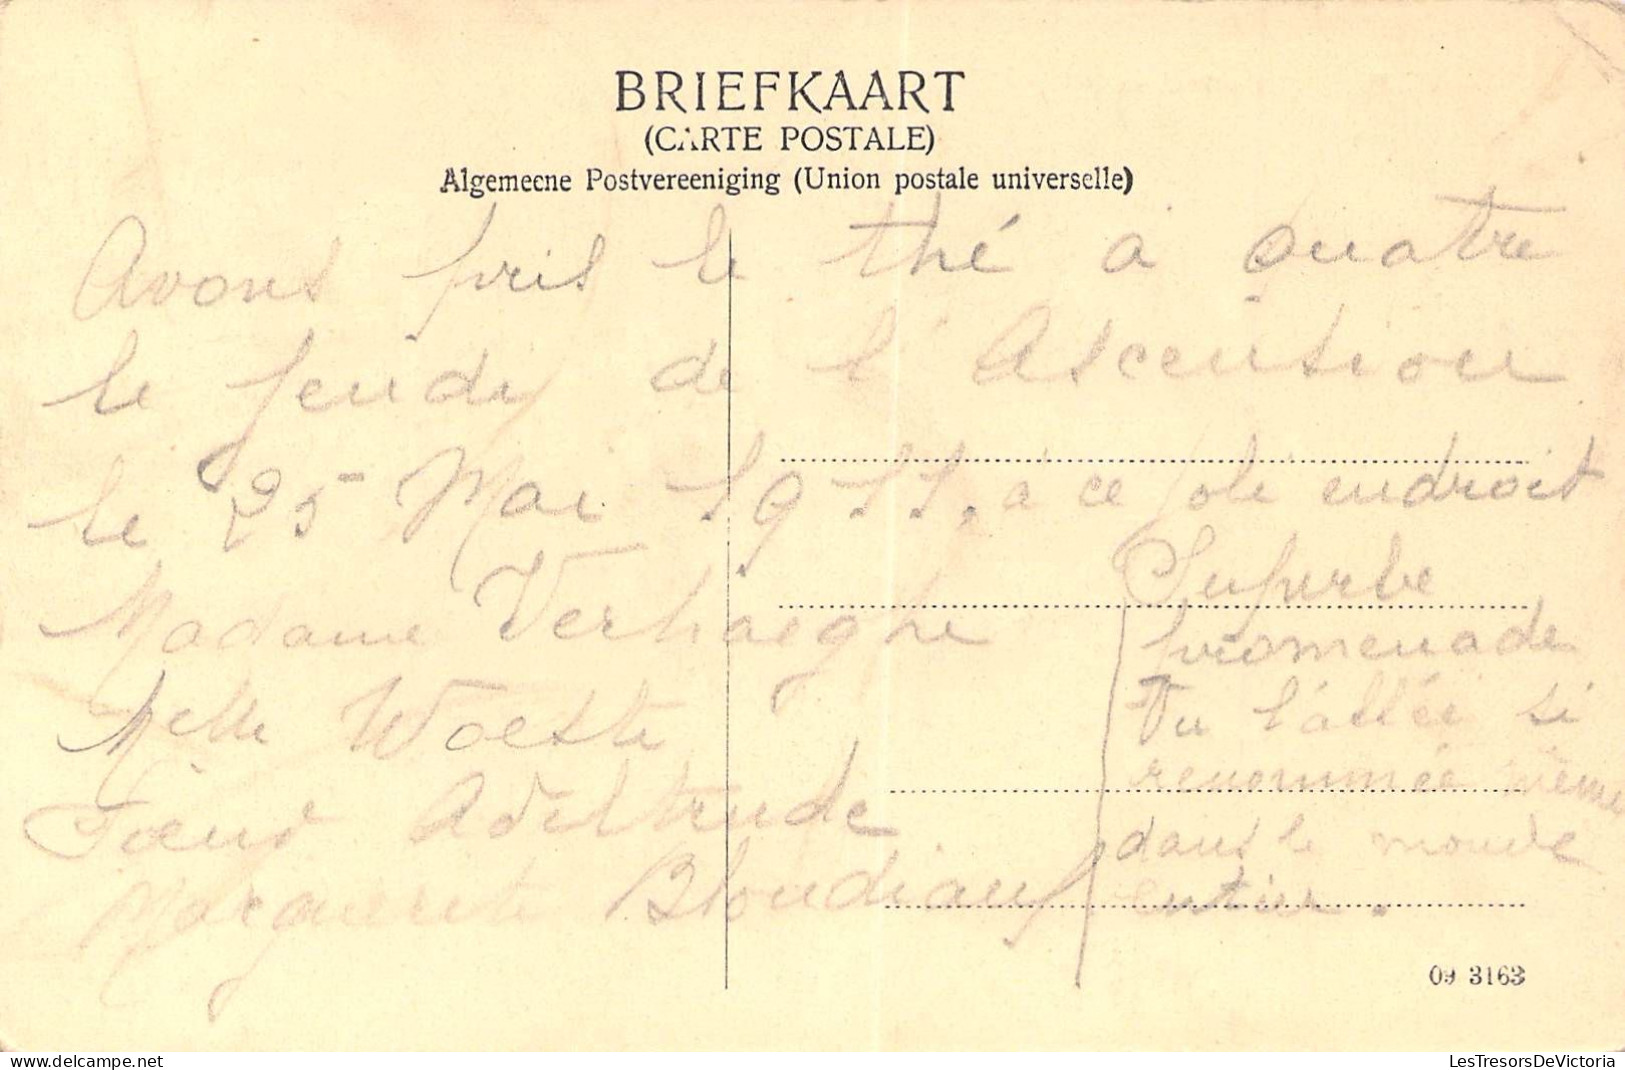 BRIEFKAART
(CARTE POSTALE)
Algemeene Postvereeniging (Union postale universelle)
Avons pris le thé à quatre
le jeudi de l'Ascension
le 25 Mai 1911, à ce joli endroit
Madame Verhaeghe
Melle Woeste
Adeltrude
Marguerite Blondiau
Superbe
promenade
Vu l'allée si
renommée même
dans le monde
entier.
09 3163
LesTresorsDeVictoria